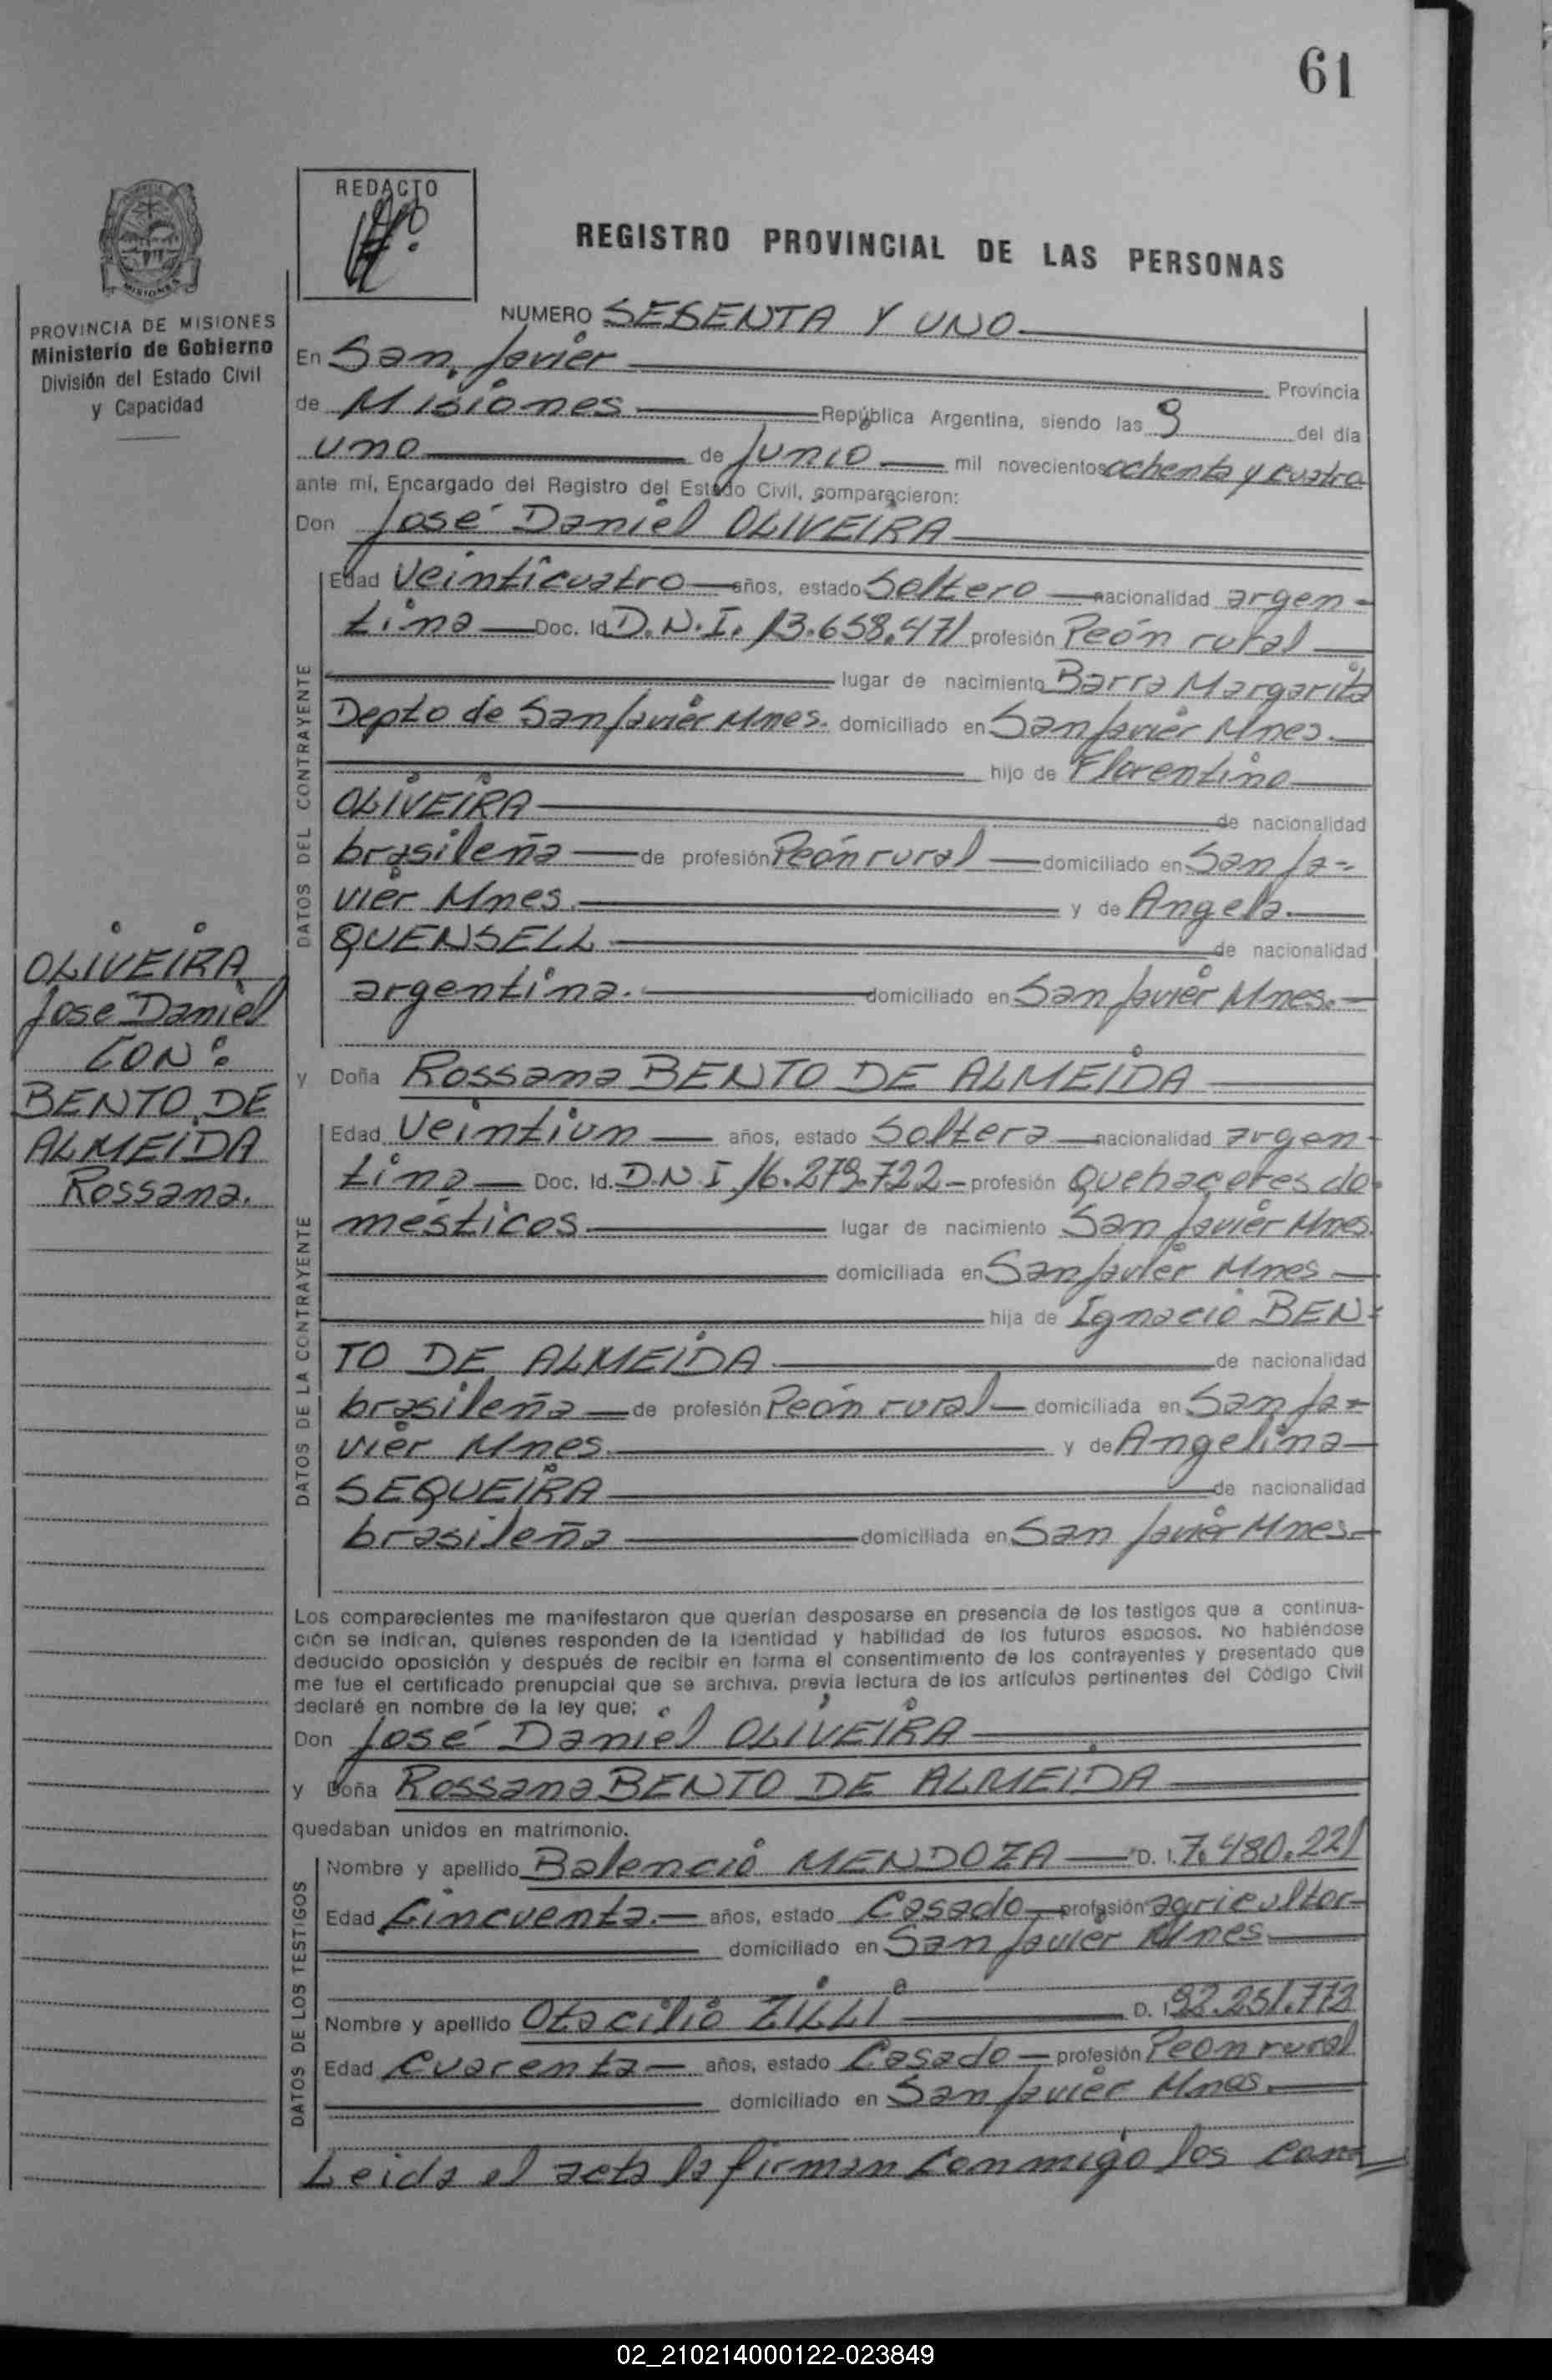 61
REDACTO
REGISTRO PROVINCIAL DE LAS PERSONAS
MISIONES
PROVINCIA DE MISIONES
Ministerio de Gobierno
División del Estado Civil
y Capacidad
OLIVEIRA
José Daniel
CON:
BENTO DE
ALMEIDA
Rossana.
NUMERO SESENTA Y UNO
En San Javier Provincia
de Misiones República Argentina, siendo las 9 del día
uno de Junio mil novecientos ochenta y cuatro
ante mí, Encargado del Registro del Estado Civil, comparecieron:
Don José Daniel OLIVEIRA
DATOS DEL CONTRAYENTE
Edad Veinticuatro años, estado Soltero nacionalidad argen-
tina Doc. Id. D.N.I. 13.658.471 profesión Peón rural
lugar de nacimiento Barra Margarita
Depto de San Javier Mnes. domiciliado en San Javier Mnes.
hijo de Florentino
OLIVEIRA de nacionalidad
brasileña de profesión Peón rural domiciliado en San Ja-
vier Mnes. y de Angela.
QUENSELL de nacionalidad
argentina. domiciliado en San Javier Mnes.
y Doña Rossana BENTO DE ALMEIDA
DATOS DE LA CONTRAYENTE
Edad Veintiun años, estado Soltera nacionalidad argen-
tina Doc. Id. D.N.I 16.279.722 profesión Quehaceres do-
mésticos lugar de nacimiento San Javier Mnes.
domiciliada en San Javier Mnes
hija de Ignacio BEN-
TO DE ALMEIDA de nacionalidad
brasileña de profesión Peón rural domiciliada en San Ja-
vier Mnes. y de Angelina
SEQUEIRA de nacionalidad
brasileña domiciliada en San Javier Mnes.
Los comparecientes me manifestaron que querían desposarse en presencia de los testigos que a continua-
ción se indican, quienes responden de la identidad y habilidad de los futuros esposos. No habiéndose
deducido oposición y después de recibir en forma el consentimiento de los contrayentes y presentado que
me fue el certificado prenupcial que se archiva, previa lectura de los artículos pertinentes del Código Civil
declaré en nombre de la ley que;
Don José Daniel OLIVEIRA
y Doña Rossana BENTO DE ALMEIDA
quedaban unidos en matrimonio.
DATOS DE LOS TESTIGOS
Nombre y apellido Balencio MENDOZA D. I. 7.480.221
Edad Cincuenta. años, estado Casado profesión agricultor
domiciliado en San Javier Mnes.
Nombre y apellido Otacilio ZILLI D. I. 92.251.772
Edad Cuarenta años, estado Casado profesión Peon rural
domiciliado en San Javier Mnes.
Leida el acta la firman conmigo los con=
02_210214000122-023849